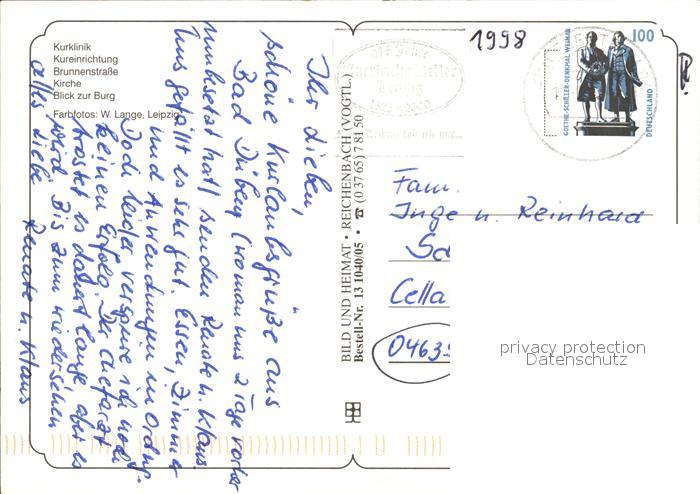 Kurklinik
Kureinrichtung
Brunnenstraße
Kirche
Blick zur Burg
Farbfotos: W. Lange, Leipzig
Ihr Lieben,
schöne Kurlaubsgrüße aus
Bad Düben (woman uns 2 Tage vorher
umbesetzt hat) senden Renate u. Klaus.
Uns gefällt es sehr gut. Essen, Zimmer
und Anwendungen in Ordng.
Doch leider verspüre ich noch
keinen Erfolg. Der Chefarzt
tröstet es dauert lange, aber es
wird. Bis zum Wiedersehen
alles Liebe Renate u. Klaus
BILD UND HEIMAT • REICHENBACH (VOGTL)
Bestell-Nr. 13 1040/05 • ☎ (0 37 65) 7 81 50
1998
100
GOETHE-SCHILLER-DENKMAL WEIMAR
DEUTSCHLAND
Fam.
Inge u. Reinhard
Cella
0463
privacy protection
Datenschutz